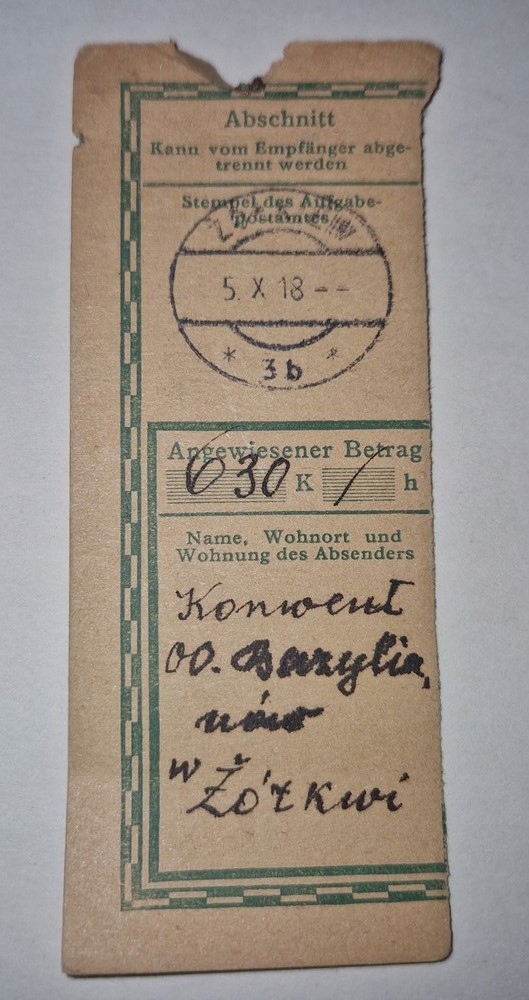 Abschnitt
Kann vom Empfänger abge-
trennt werden
Stempel des Aufgabe-
postamtes
5. X 18 - -
* 3b *
Angewiesener Betrag
630 K / h
Name, Wohnort und
Wohnung des Absenders
Konwent
OO. Bazylia,
nów
w Żółkwi